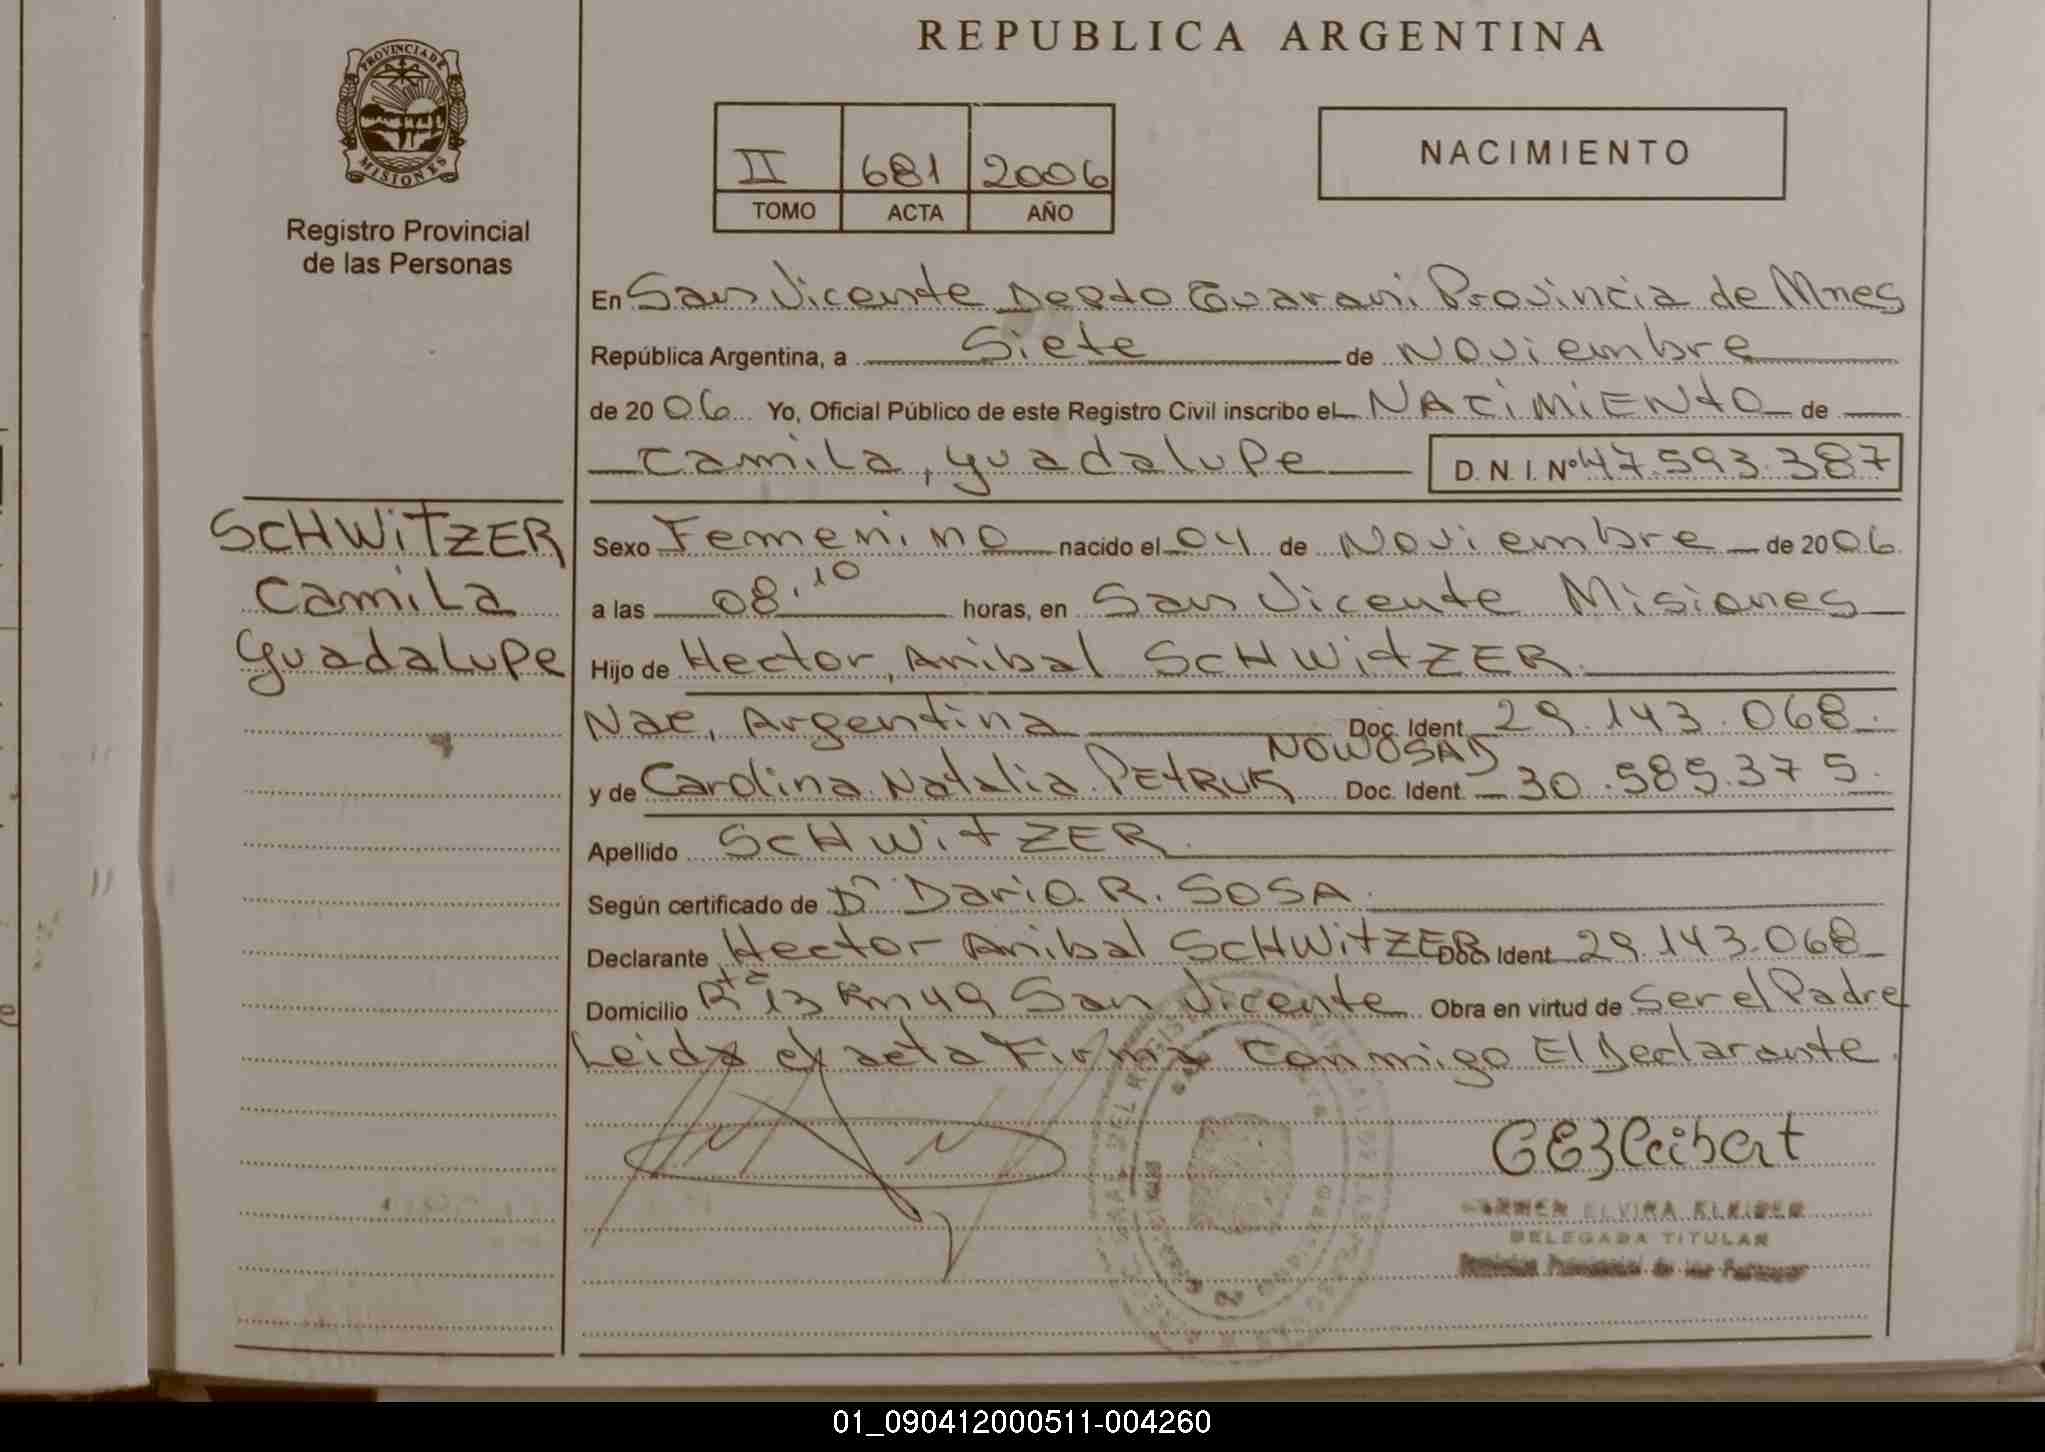 REPUBLICA ARGENTINA
PROVINCIA DE
MISIONES
Registro Provincial
de las Personas
II 681 2006
TOMO ACTA AÑO
NACIMIENTO
En San Vicente Depto Guarani Provincia de Mnes
República Argentina, a Siete de Noviembre
de 2006 Yo, Oficial Público de este Registro Civil inscribo el NACIMIENTO de
Camila, Guadalupe D. N. I. Nº 47.593.387
SCHWITZER
Camila
Guadalupe
Sexo Femenino nacido el 04 de Noviembre de 2006
a las 08.10 horas, en San Vicente Misiones
Hijo de Hector, Anibal SCHWITZER
Nac, Argentina Doc. Ident. 29.143.068.
y de Carolina Natalia PETRUK NOWOSAD Doc. Ident. 30.585.375.
Apellido SCHWITZER.
Según certificado de Dr Dario R. SOSA.
Declarante Hector Anibal SCHWITZER Doc Ident 29.143.068
Domicilio Rta 13 Km 49 San Vicente Obra en virtud de Ser el Padre
Leida el acta Firma Conmigo El Declarante.
ELVIRA
DELEGADA TITULAR
01_090412000511-004260